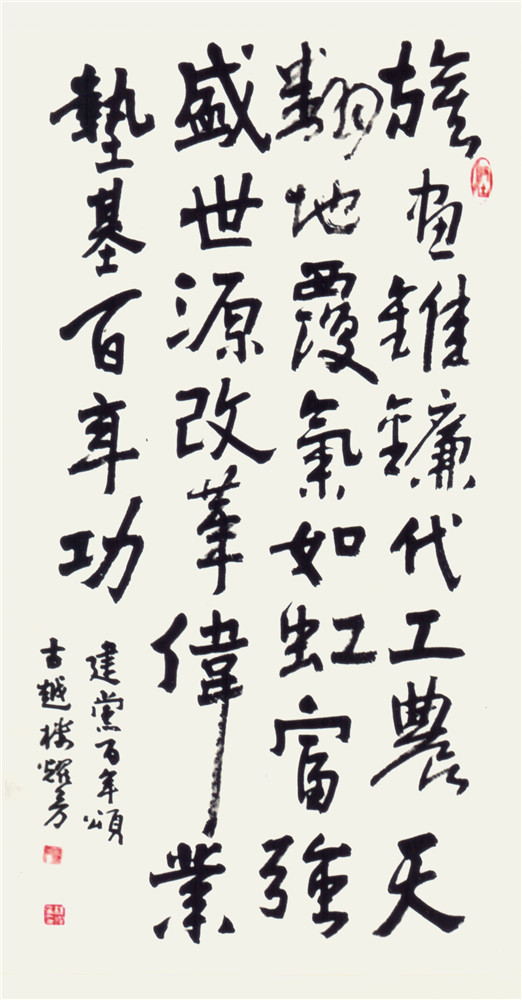 旗画錐鐮代工農天
翻地覆氣如虹富強
盛世源改革偉業
墊基百年功
建黨百年頌
古越耀芳